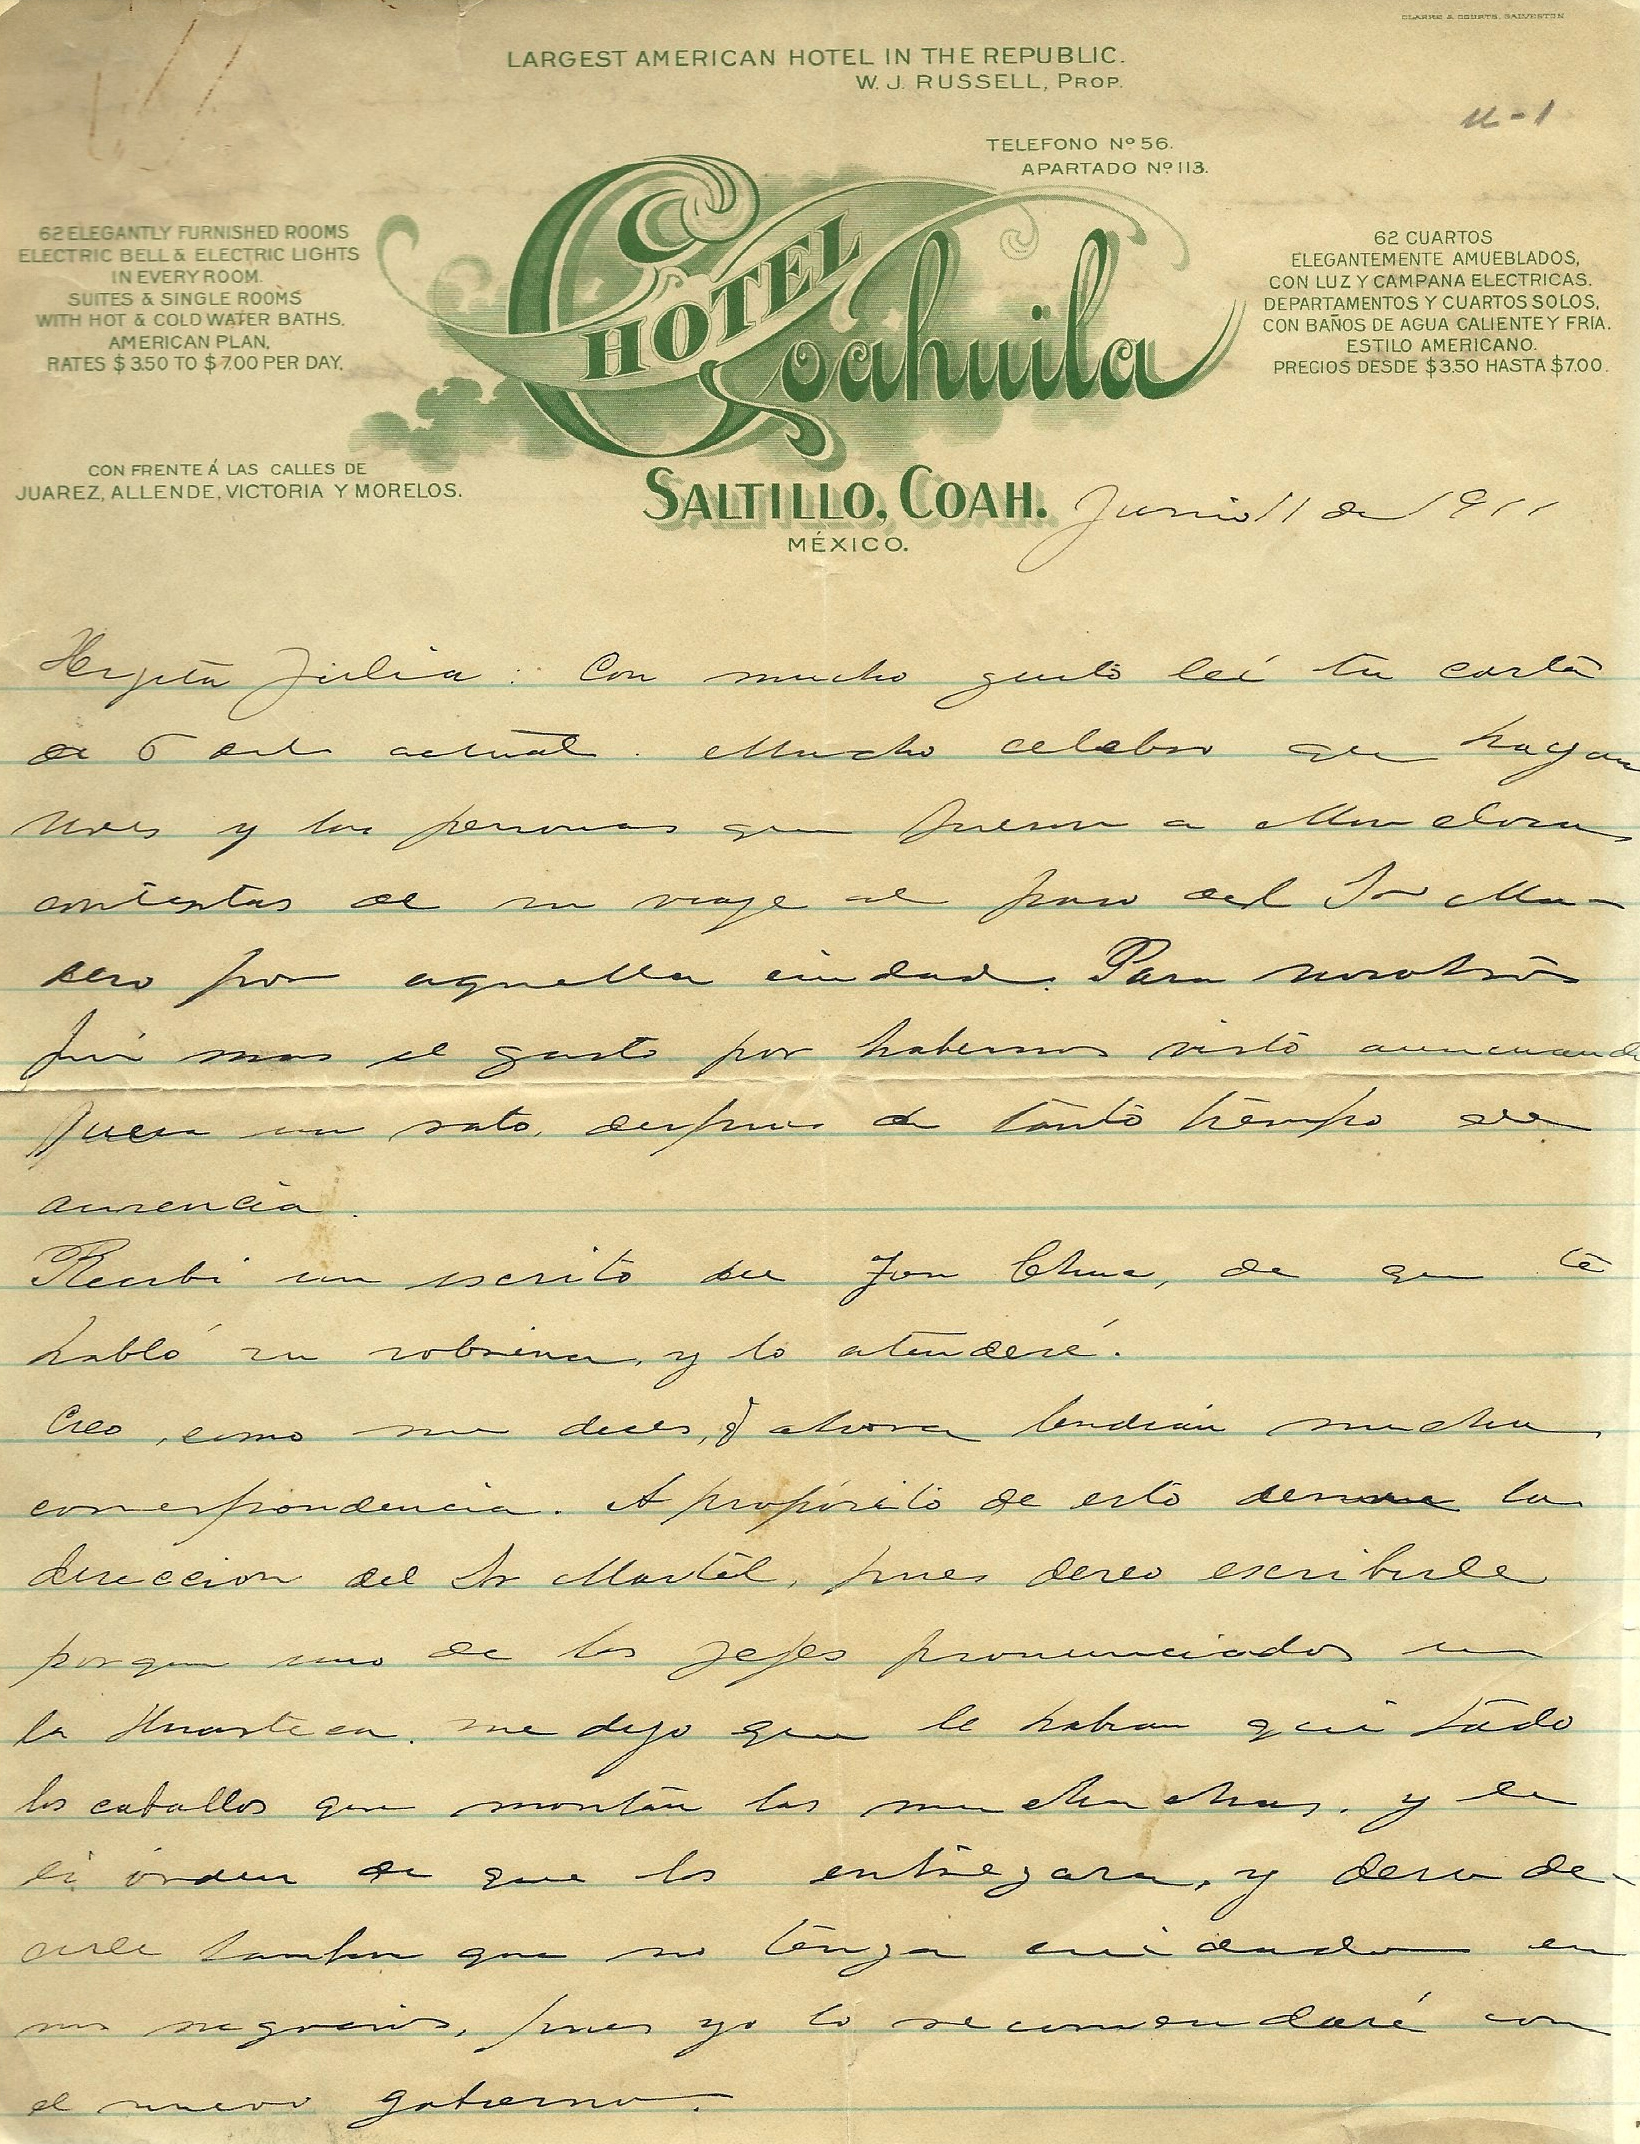 CLARKE & COURTS, GALVESTON
LARGEST AMERICAN HOTEL IN THE REPUBLIC.
W. J. RUSSELL, PROP.
TELEFONO Nº 56.
APARTADO Nº 113.
62 ELEGANTLY FURNISHED ROOMS
ELECTRIC BELL & ELECTRIC LIGHTS
IN EVERY ROOM.
SUITES & SINGLE ROOMS
WITH HOT & COLD WATER BATHS.
AMERICAN PLAN,
RATES $ 3.50 TO $ 7.00 PER DAY.
HOTEL Coahuila
62 CUARTOS
ELEGANTEMENTE AMUEBLADOS,
CON LUZ Y CAMPANA ELECTRICAS.
DEPARTAMENTOS Y CUARTOS SOLOS,
CON BAÑOS DE AGUA CALIENTE Y FRIA.
ESTILO AMERICANO.
PRECIOS DESDE $3.50 HASTA $7.00.
CON FRENTE Á LAS CALLES DE
JUAREZ, ALLENDE, VICTORIA Y MORELOS.
SALTILLO, COAH. Junio 11 de 1911
MÉXICO.
Hijita Julia: Con mucho gusto leí tu carta
de 6 del actual. Mucho celebro que hayan
Udes y las personas que fueron a Monclova
contentas de su viaje al paso del Sr Ma-
dero por aquella ciudad. Para nosotros
fué mas el gusto por habernos visto auncuando
fuera un rato, despues de tanto tiempo de
ausencia.
Recibi un escrito de Jon Chua, de que te
habló su sobrina, y lo atenderé.
Creo, como me dices, q ahora tendrán mucha
correspondencia. A propósito de esto deseo la
direccion del Sr Martel, pues deseo escribirle
porque uno de los jefes pronunciados en
la Huasteca, me dijo que le habian quitado
los caballos que montan las muchachas, y le
di órden de que los entregara, y deseo de-
cirle tambien que no tenga cuidado en
sus negocios, pues yo lo recomendaré con
el nuevo gobierno.